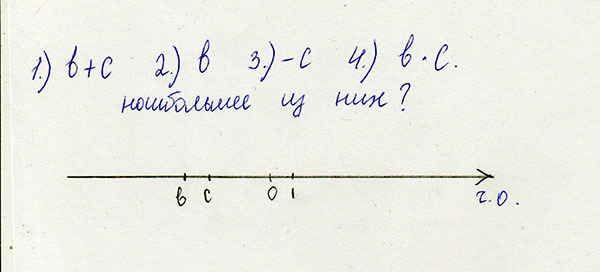 1.) в+с 2.) в 3.) -с 4.) в·с.
наибольшее из них?
в с 0 1
ч.о.